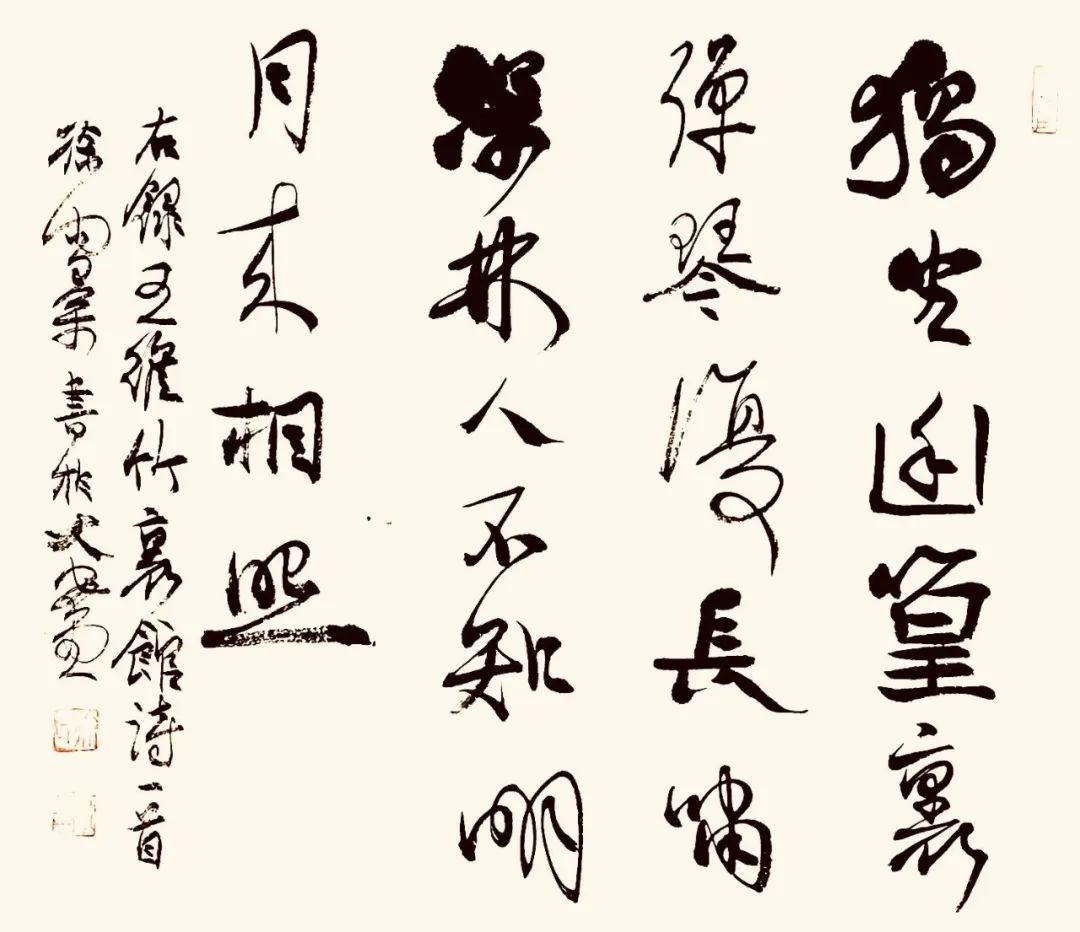 獨坐幽篁裏
彈琴復長嘯
深林人不知明
月来相照
右錄王維竹裏館詩一首
徐書於